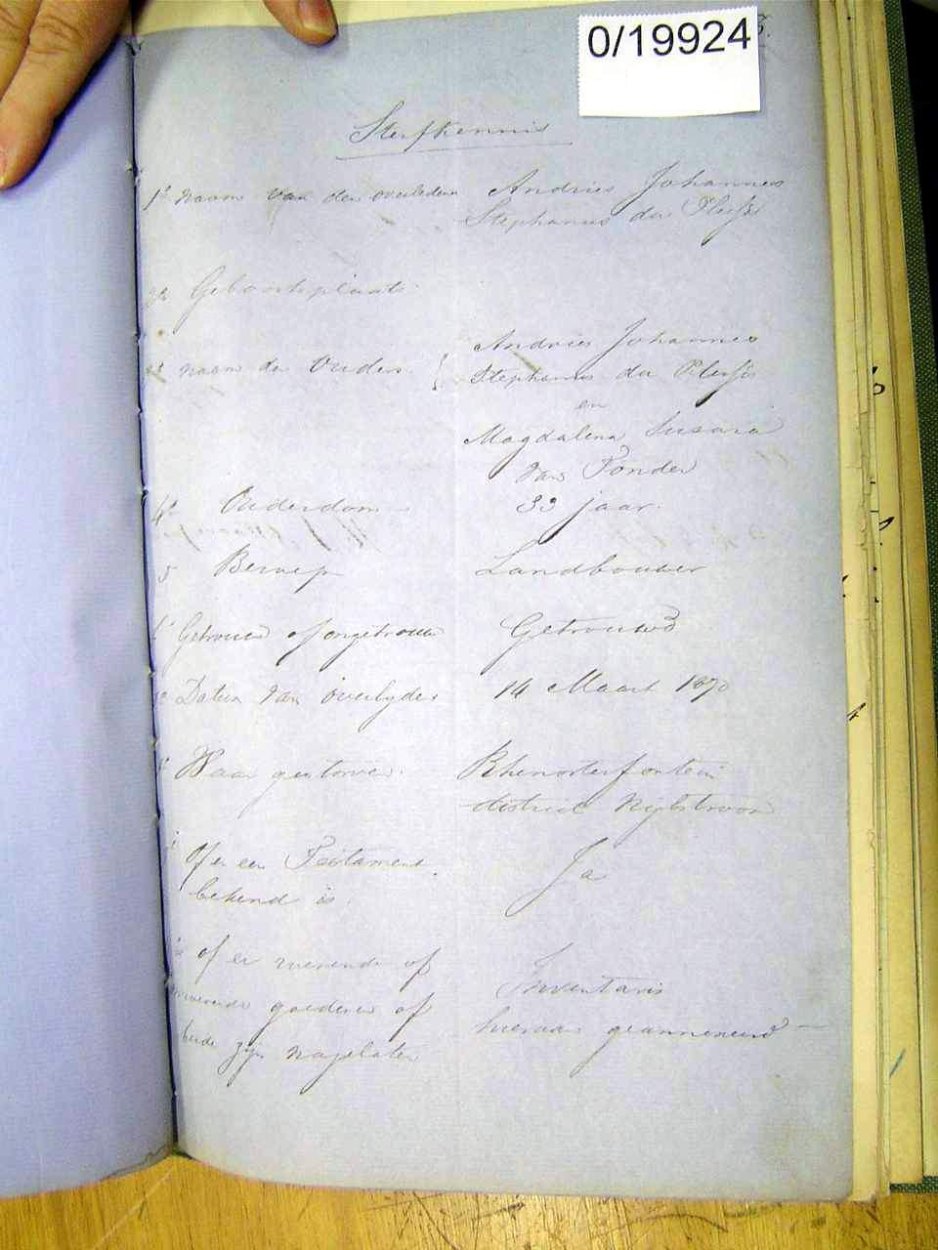 0/19924
Sterfkennis
1e naam van den overleden Andries Johannes
Stephanus du Plessis
2e Geboorteplaats
3e naam der Ouders Andries Johannes
Stephanus du Plessis
en
Magdalena Susara
van Tonder
4e Ouderdom 33 jaar
5 Beroep Landbouwer
6e Getrouwd of ongetrouwd Getrouwd
7e Datum van overlyden 14 Maart 1870
8e Waar gestorven Rhenosterfontein
district Nijlstroom
of er een Testament Ja
bekend is
of er roerende of Inventaris
onroerende goederen of hieraan geannexeerd
beide zijn nagelaten